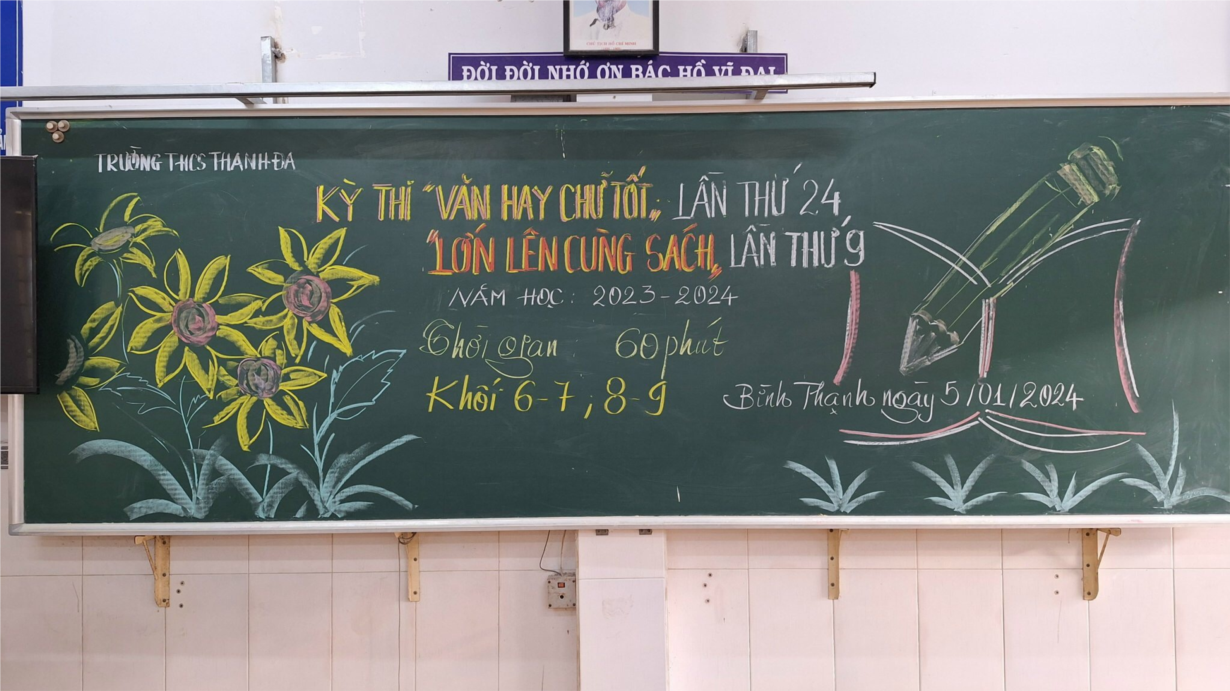 ĐỜI ĐỜI NHỚ ƠN BÁC HỒ VĨ ĐẠI
TRƯỜNG THCS THANH ĐA
KỲ THI "VĂN HAY CHỮ TỐT", LẦN THỨ 24
"LỚN LÊN CÙNG SÁCH", LẦN THỨ 9
NĂM HỌC: 2023-2024
Thời gian 60 phút
Khối 6-7; 8-9
Bình Thạnh ngày 5/01/2024